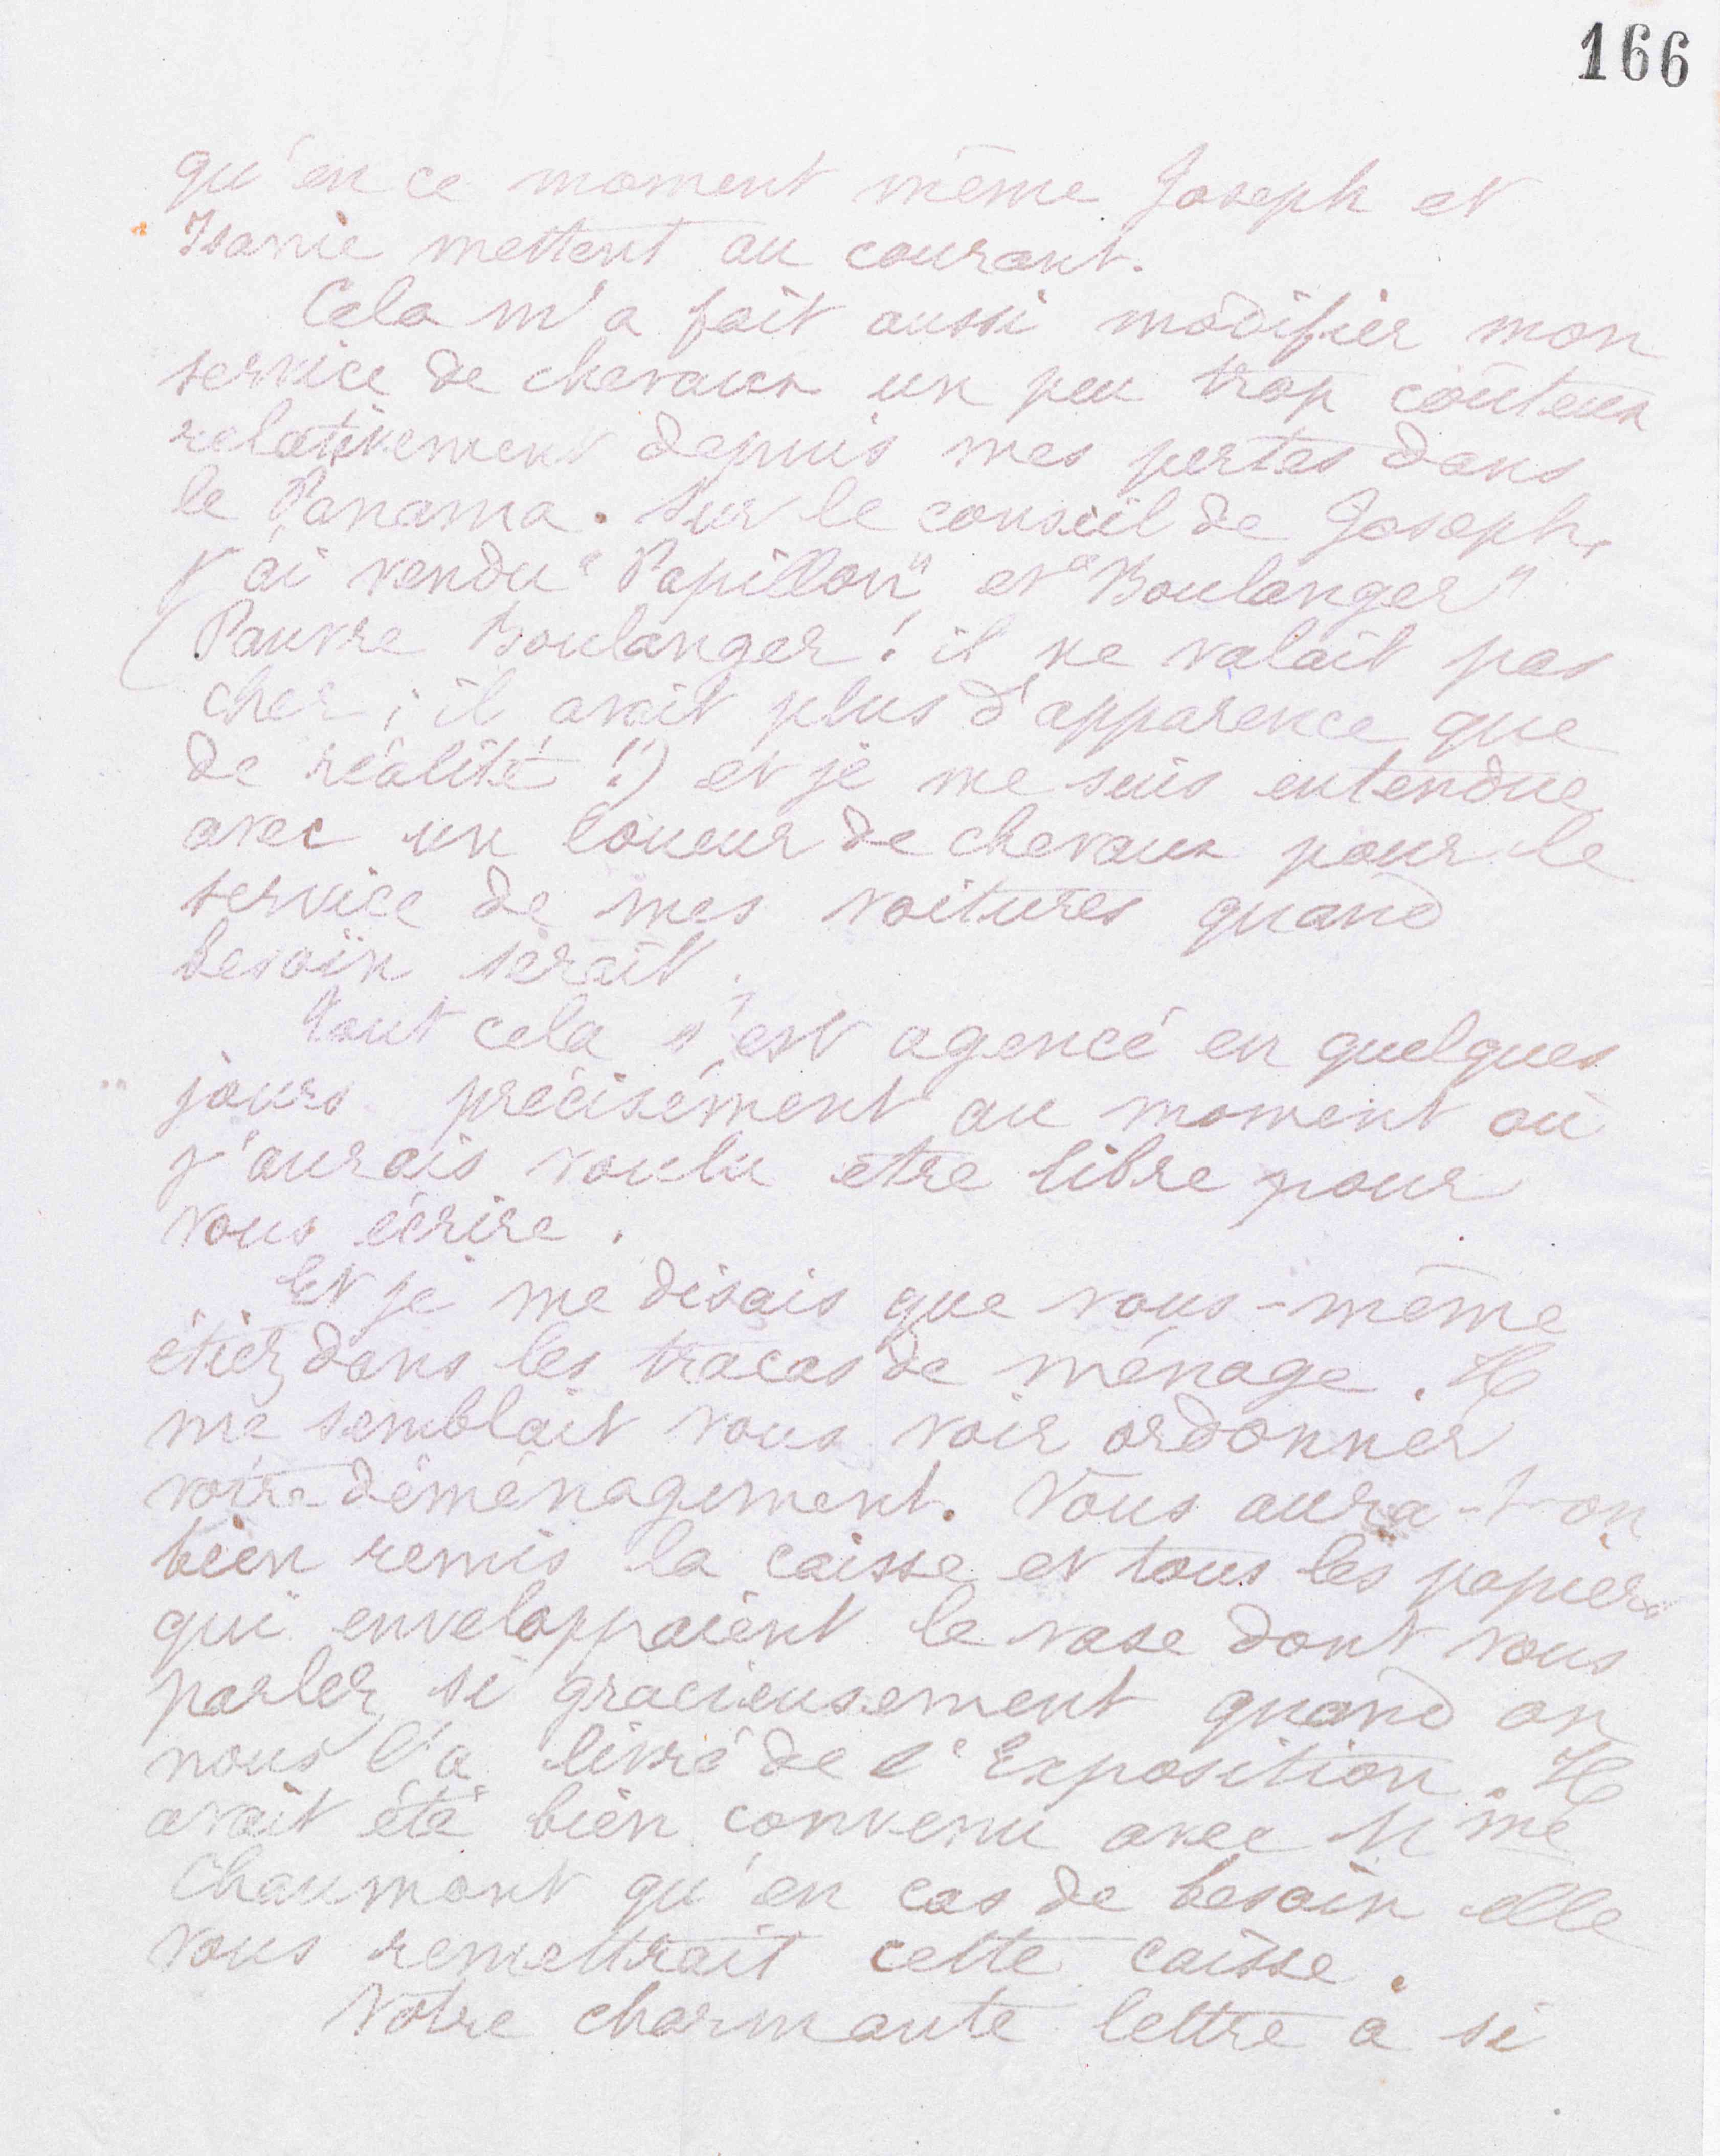 166
qu'en ce moment même Joseph et
Isanie mettent au courant.
Cela m'a fait aussi modifier mon
service de chevaux un peu trop coûteux
relativement depuis mes pertes dans
le Panama. Sur le conseil de Joseph,
j'ai vendu "Papillon" et "Boulanger"
(Pauvre Boulanger ! il ne valait pas
cher ; il avait plus d'apparence que
de réalité !!) et je me suis entendue
avec un loueur de chevaux pour le
service de mes voitures quand
besoin serait.
Tout cela s'est agencé en quelques
jours précisément au moment où
j'aurais voulu être libre pour
vous écrire.
Et je me disais que vous-même
étiez dans les tracas de ménage. Il
me semblait vous voir ordonner
votre déménagement. Vous aura-t-on
bien remis la caisse et tous les papiers
qui enveloppaient le vase dont vous
parlez si gracieusement quand on
nous l'a livré de l'Exposition. Il
avait été bien convenu avec Mme
Chaumont qu'en cas de besoin elle
vous remettrait cette caisse.
Votre charmante lettre a si